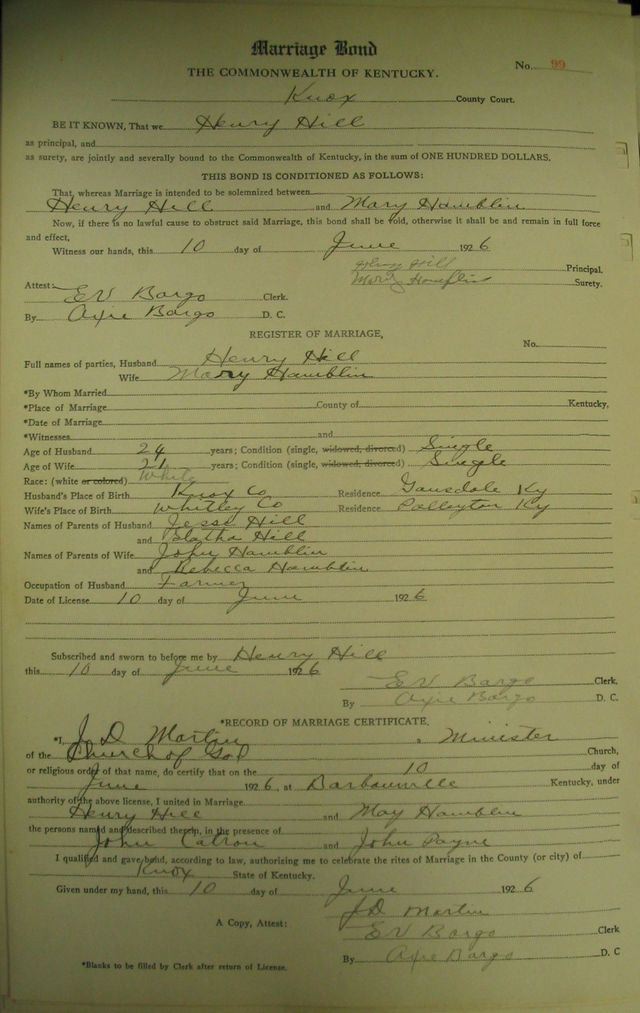 Marriage Bond
No. 99
THE COMMONWEALTH OF KENTUCKY.
Knox County Court.
BE IT KNOWN, That we Henry Hill
as principal, and
as surety, are jointly and severally bound to the Commonwealth of Kentucky, in the sum of ONE HUNDRED DOLLARS.
THIS BOND IS CONDITIONED AS FOLLOWS:
That, whereas Marriage is intended to be solemnized between
Henry Hill and Mary Hamblin
Now, if there is no lawful cause to obstruct said Marriage, this bond shall be void, otherwise it shall be and remain in full force
and effect,
Witness our hands, this 10 day of June 1926
Henry Hill Principal.
Mary Surety.
Attest: EV Bargo Clerk.
By Axie Bargo D. C.
REGISTER OF MARRIAGE,
No.
Full names of parties, Husband Henry Hill
Wife Mary Hamblin
*By Whom Married
*Place of Marriage County of Kentucky,
*Date of Marriage
*Witnesses and
Age of Husband 24 years; Condition (single, widowed, divorced) Single
Age of Wife 21 years; Condition (single, widowed, divorced) Single
Race: (white or colored) White
Husband's Place of Birth Knox Co Residence Ky
Wife's Place of Birth Whitley Co Residence Ky
Names of Parents of Husband Jesse Hill
and Hill
Names of Parents of Wife John Hamblin
and Rebecca Hamblin
Occupation of Husband Farmer
Date of License 10 day of June 1926
Subscribed and sworn to before me by Henry Hill
this 10 day of June 1926
EV Bargo Clerk.
By Axie Bargo D. C.
*RECORD OF MARRIAGE CERTIFICATE.
*I, J D Martin, Minister
of the Church of God Church,
or religious order of that name, do certify that on the 10 day of
June 1926, at Barbourville Kentucky, under
authority of the above license, I united in Marriage
Henry Hill and May Hamblin
the persons named and described therein, in the presence of
John Catron and John Payne
I qualified and gave bond, according to law, authorizing me to celebrate the rites of Marriage in the County (or city) of
Knox State of Kentucky.
Given under my hand, this 10 day of June 1926
J D Martin
A Copy, Attest: EV Bargo Clerk
By Axie Bargo D. C
*Blanks to be filled by Clerk after return of License.